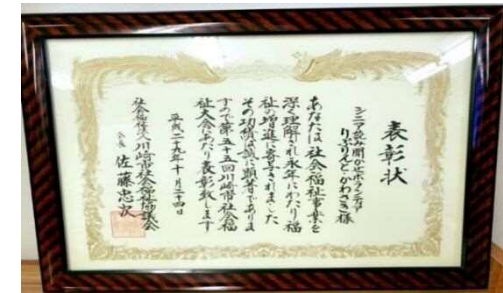 表彰状
シニア読み聞かせボランティア
りぷりんと・かわさき様
あなたは社会福祉事業を
深く理解され永年にわたり福
祉の増進に寄与されました
その功績は誠に顕著であります
すので第五十五回川崎市社会福
祉大会にあたり表彰致します
平成二十九年十月二十四日
社会福祉法人川崎市社会福祉協議会
会長 佐藤忠次